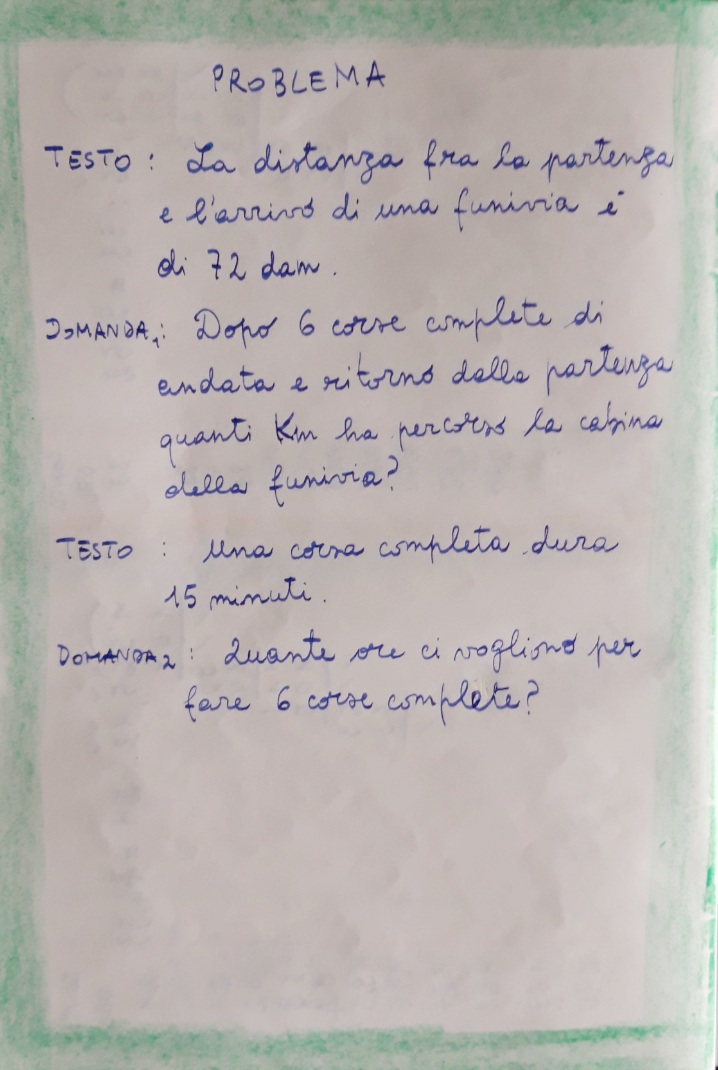 PROBLEMA
TESTO : La distanza fra la partenza
e l'arrivo di una funivia è
di 72 dam.
DOMANDA1: Dopo 6 corse complete di
andata e ritorno dalla partenza
quanti Km ha percorso la cabina
della funivia?
TESTO : Una corsa completa dura
15 minuti.
DOMANDA2: Quante ore ci vogliono per
fare 6 corse complete?